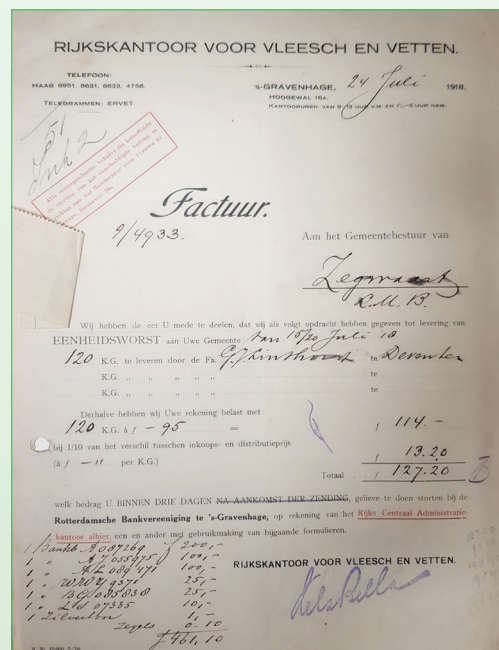 RIJKSKANTOOR VOOR VLEESCH EN VETTEN.
TELEFOON:
HAAG 8951, 8621, 8622, 4756.
TELEGRAMMEN: ERVET.
's-GRAVENHAGE, 24 Juli 1918.
HOOGEWAL 16A.
KANTOORUREN: VAN 9-12 UUR V.M. EN 1½-5 UUR NAM.
Factuur.
9/4933.
Aan het Gemeentebestuur van
Zegwaart
Wij hebben de eer U mede te deelen, dat wij als volgt opdracht hebben gegeven tot levering van
EENHEIDSWORST aan Uwe Gemeente van 15/20 Juli 18
120 K.G. te leveren door de Fa. te Deventer
K.G. „ „ „ „ „ te
K.G. „ „ „ „ „ te
Derhalve hebben wij Uwe rekening belast met:
120 K.G. à ƒ -95 = ƒ 114.-
bij 1/10 van het verschil tusschen inkoops- en distributieprijs
(à ƒ -11 per K.G.) ƒ 13.20
Totaal ƒ 127.20
welk bedrag U BINNEN DRIE DAGEN NA AANKOMST DER ZENDING, gelieve te doen storten bij de
Rotterdamsche Bankvereeniging te 's-Gravenhage, op rekening van het Rijks Centraal Administratie-
kantoor alhier, een en ander met gebruikmaking van bijgaande formulieren.
1 Bankb. A 087269 ƒ 200,-
1 „ A 7055975 100,-
1 „ AL 089471 100,-
1 „ WRWY 9371 25,-
1 „ BG 085838 25,-
1 „ LS 07335 10,-
1 Zilverbon 1,-
Zegels 0-10
ƒ 461,10
RIJKSKANTOOR VOOR VLEESCH EN VETTEN.